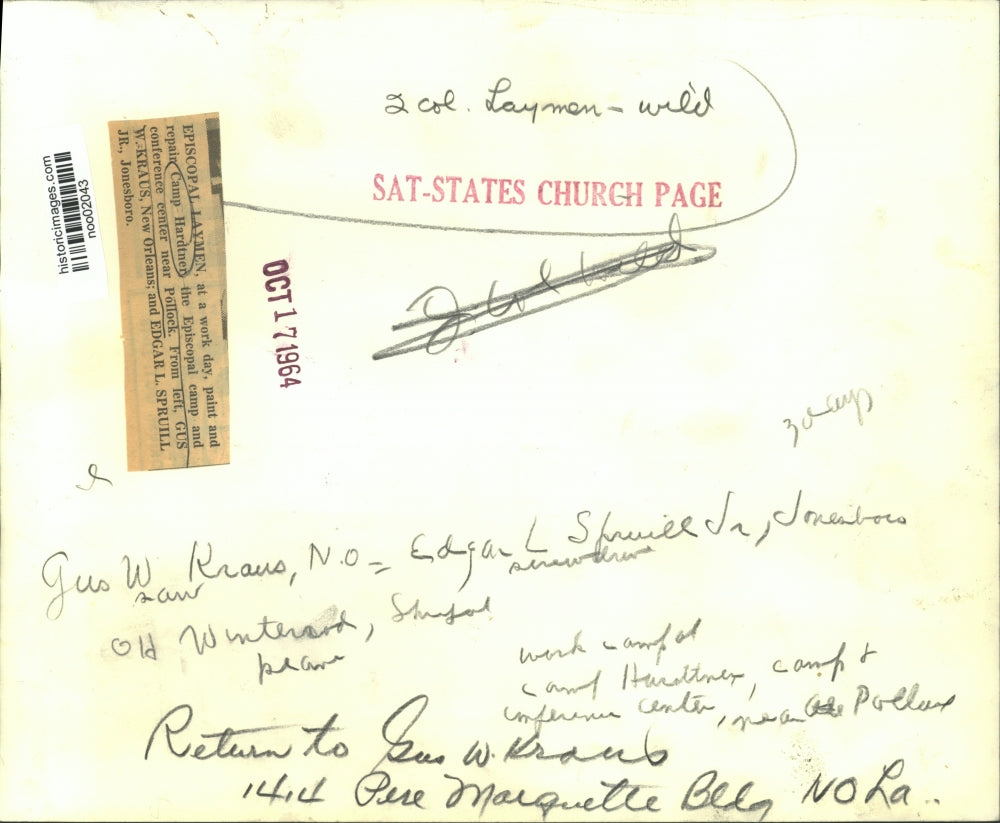 2 col. Laymen - wild
SAT-STATES CHURCH PAGE
historicimages.com
noo02043
EPISCOPAL LAYMEN, at a work day, paint and
repair Camp Hardtner, the Episcopal camp and
conference center near Pollock. From left, GUS
W. KRAUS, New Orleans; and EDGAR L. SPRUILL
JR., Jonesboro.
OCT 17 1964
Gus W Kraus, N.O - Edgar L Spruill Jr, Jonesboro
saw screwdriver
plane
work camp at
camp Hardtner, camp &
conference center, near Pollock
Return to Gus W. Kraus
1414 Pere Marquette Bldg NO La..